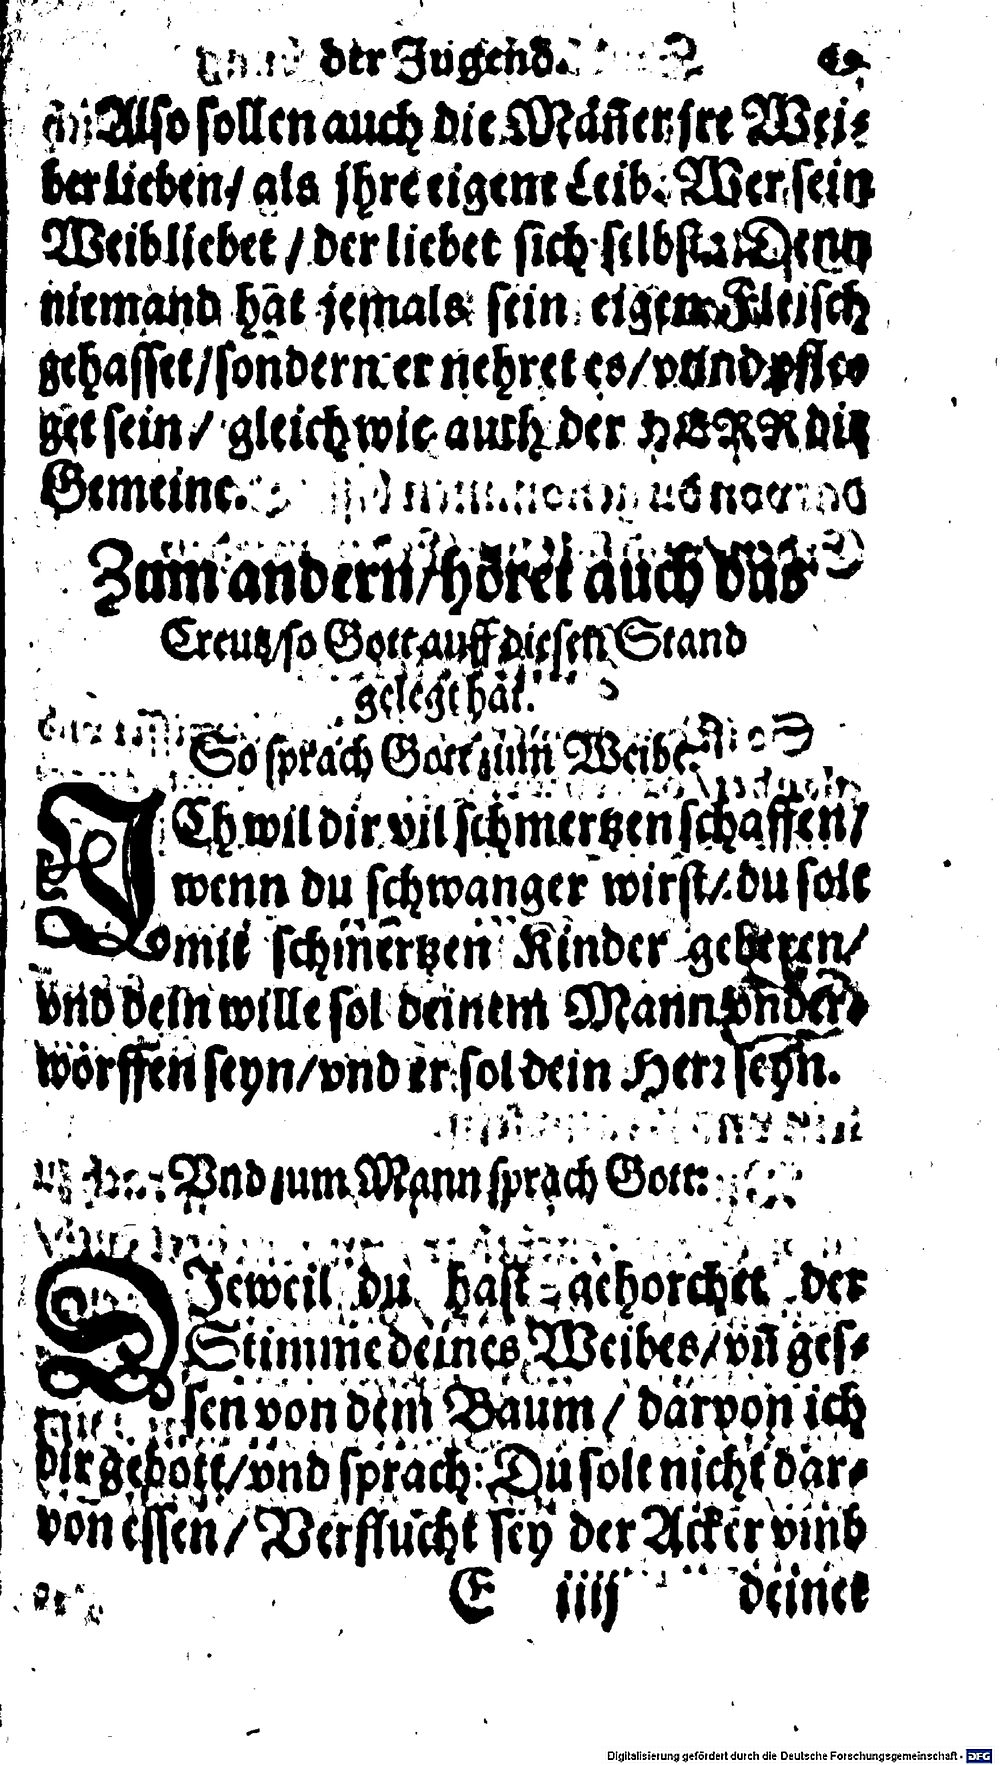 der Jugend.
Also sollen auch die Mäñer jre Wei-
ber lieben/ als jhre eigene Leib. Wer sein
Weib liebet / der liebet sich selbst. Denn
niemand hat jemals sein eigen Fleisch
gehasset/ sondern er nehret es/ vnnd pfle-
get sein/ gleich wie auch der HERR die
Gemeine.
Zum andern/ höret auch das
Creutz/ so Gott auff diesen Stand
gelegt hat.
So sprach Gott zum Weibe:
ICh wil dir vil schmertzen schaffen/
wenn du schwanger wirst/ du solt
mit schmertzen Kinder geberen/
vnd dein wille sol deinem Mann vnder-
worffen seyn/ vnd er sol dein Herr seyn.
Vnd zum Mann sprach Gott:
DJeweil du hast gehorchet der
Stimme deines Weibes/ vñ ges-
sen von dem Baum / darvon ich
dir gebott/ vnd sprach: Du solt nicht dar-
von essen/ Verflucht sey der Acker vmb
E iiij deinet
Digitalisierung gefördert durch die Deutsche Forschungsgemeinschaft - DFG